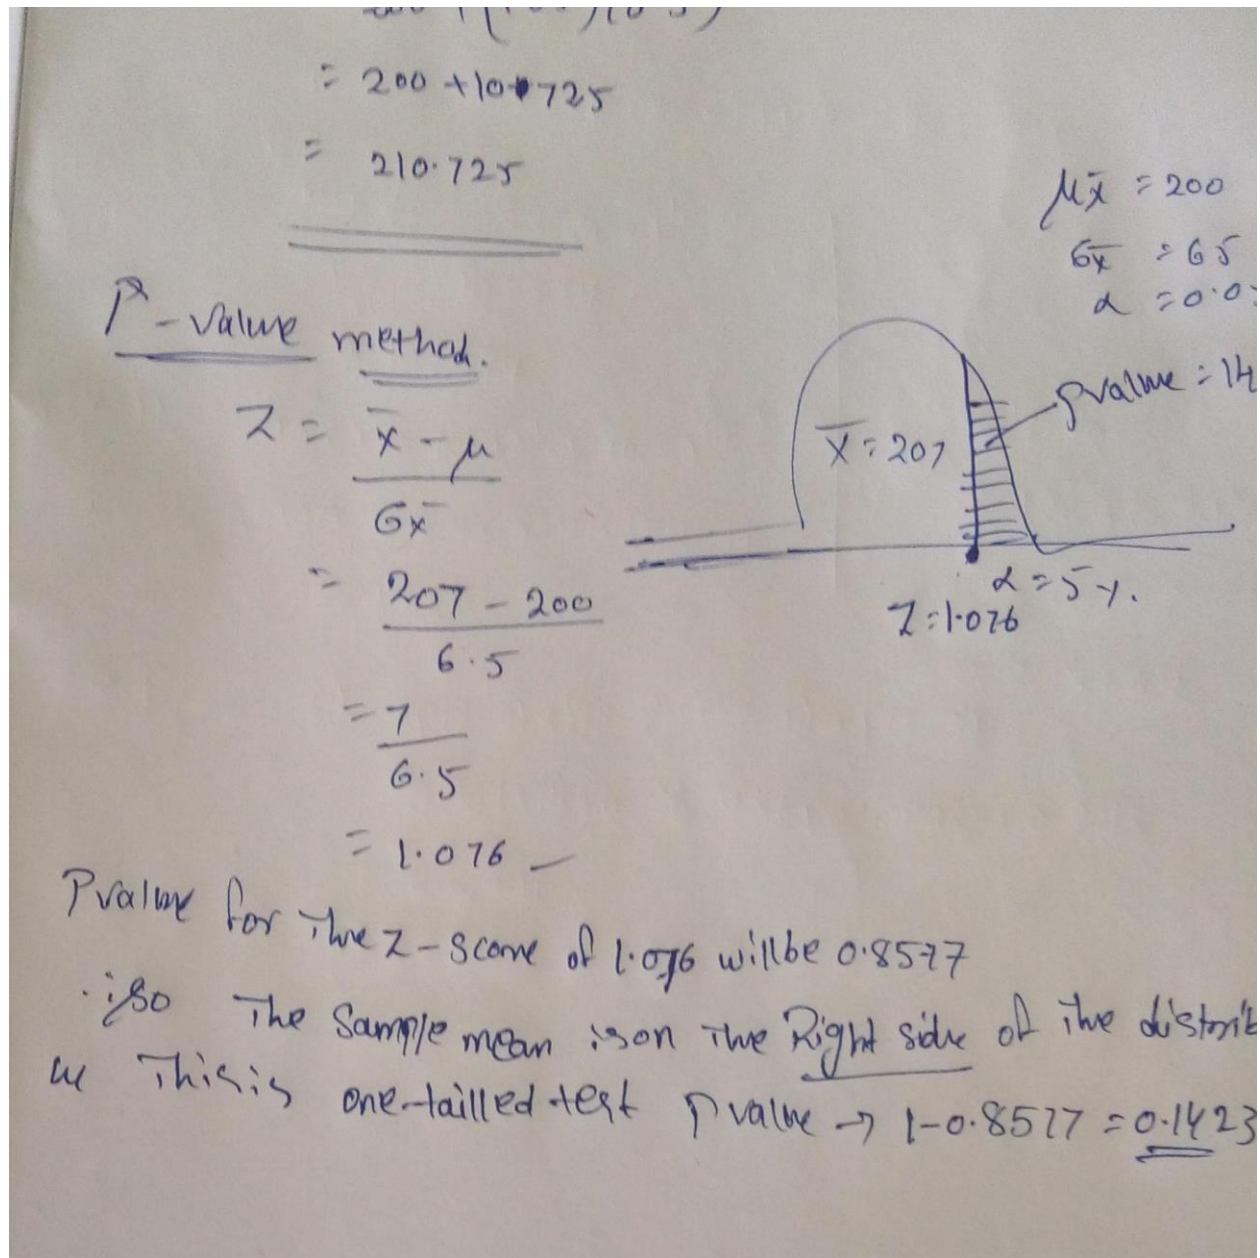 = 200 + 10.725
= 210.725
μx̄ = 200
σx̄ = 6.5
α = 0.0
P-value method.
Z = x̄ - μ
σx̄
pvalue = 14
X̄ = 207
= 207 - 200
6.5
α = 5%
Z = 1.076
= 7
6.5
= 1.076
Pvalue for The z-score of 1.076 will be 0.8577
so The Sample mean is on The Right side of The distrib
This is one-tailled test Pvalue → 1-0.8577 = 0.1423